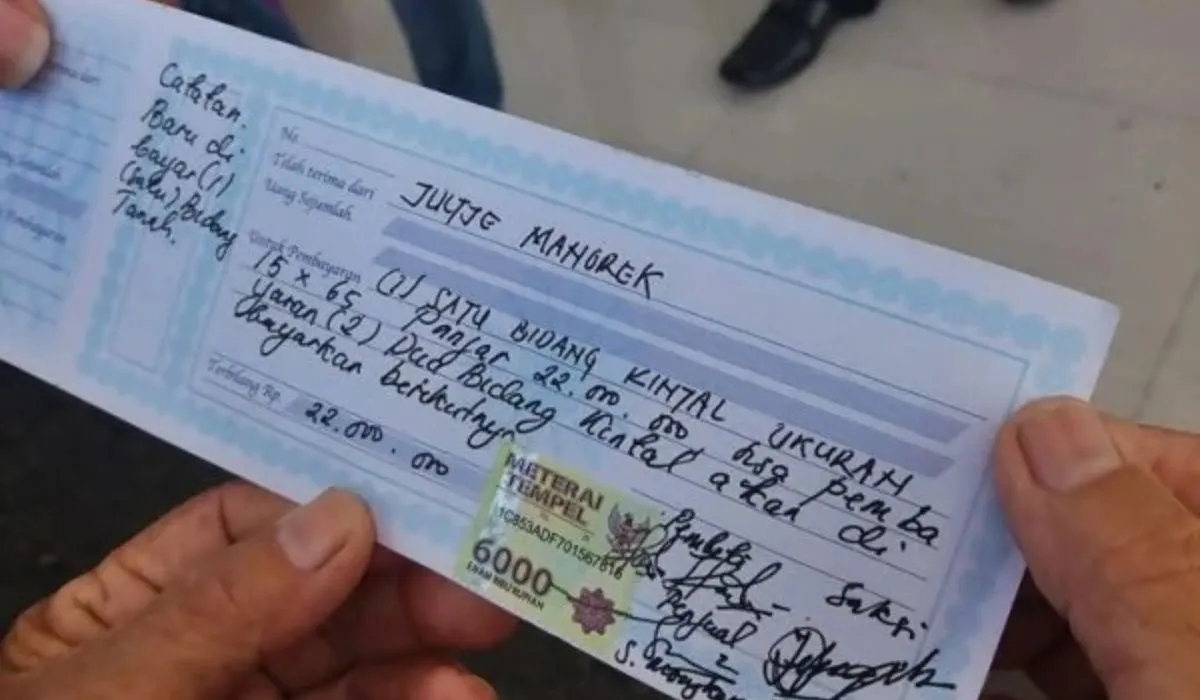 Catatan.
Baru di
bayar (1)
(satu) Bidang
Tanah.
No.
Telah terima dari JULTJE MANOREK
Uang Sejumlah
Untuk Pembayaran (1) SATU BIDANG KINTAL UKURAN
15 x 65 Panjar 22.000.000 sisa pemba
yaran (2) Dua Bidang Kintal akan di
bayarkan berikutnya
Terbilang Rp. 22.000.000
METERAI
TEMPEL
1C853ADF701567816
6000
ENAM RIBU RUPIAH
Pembeli Saksi
Penjual